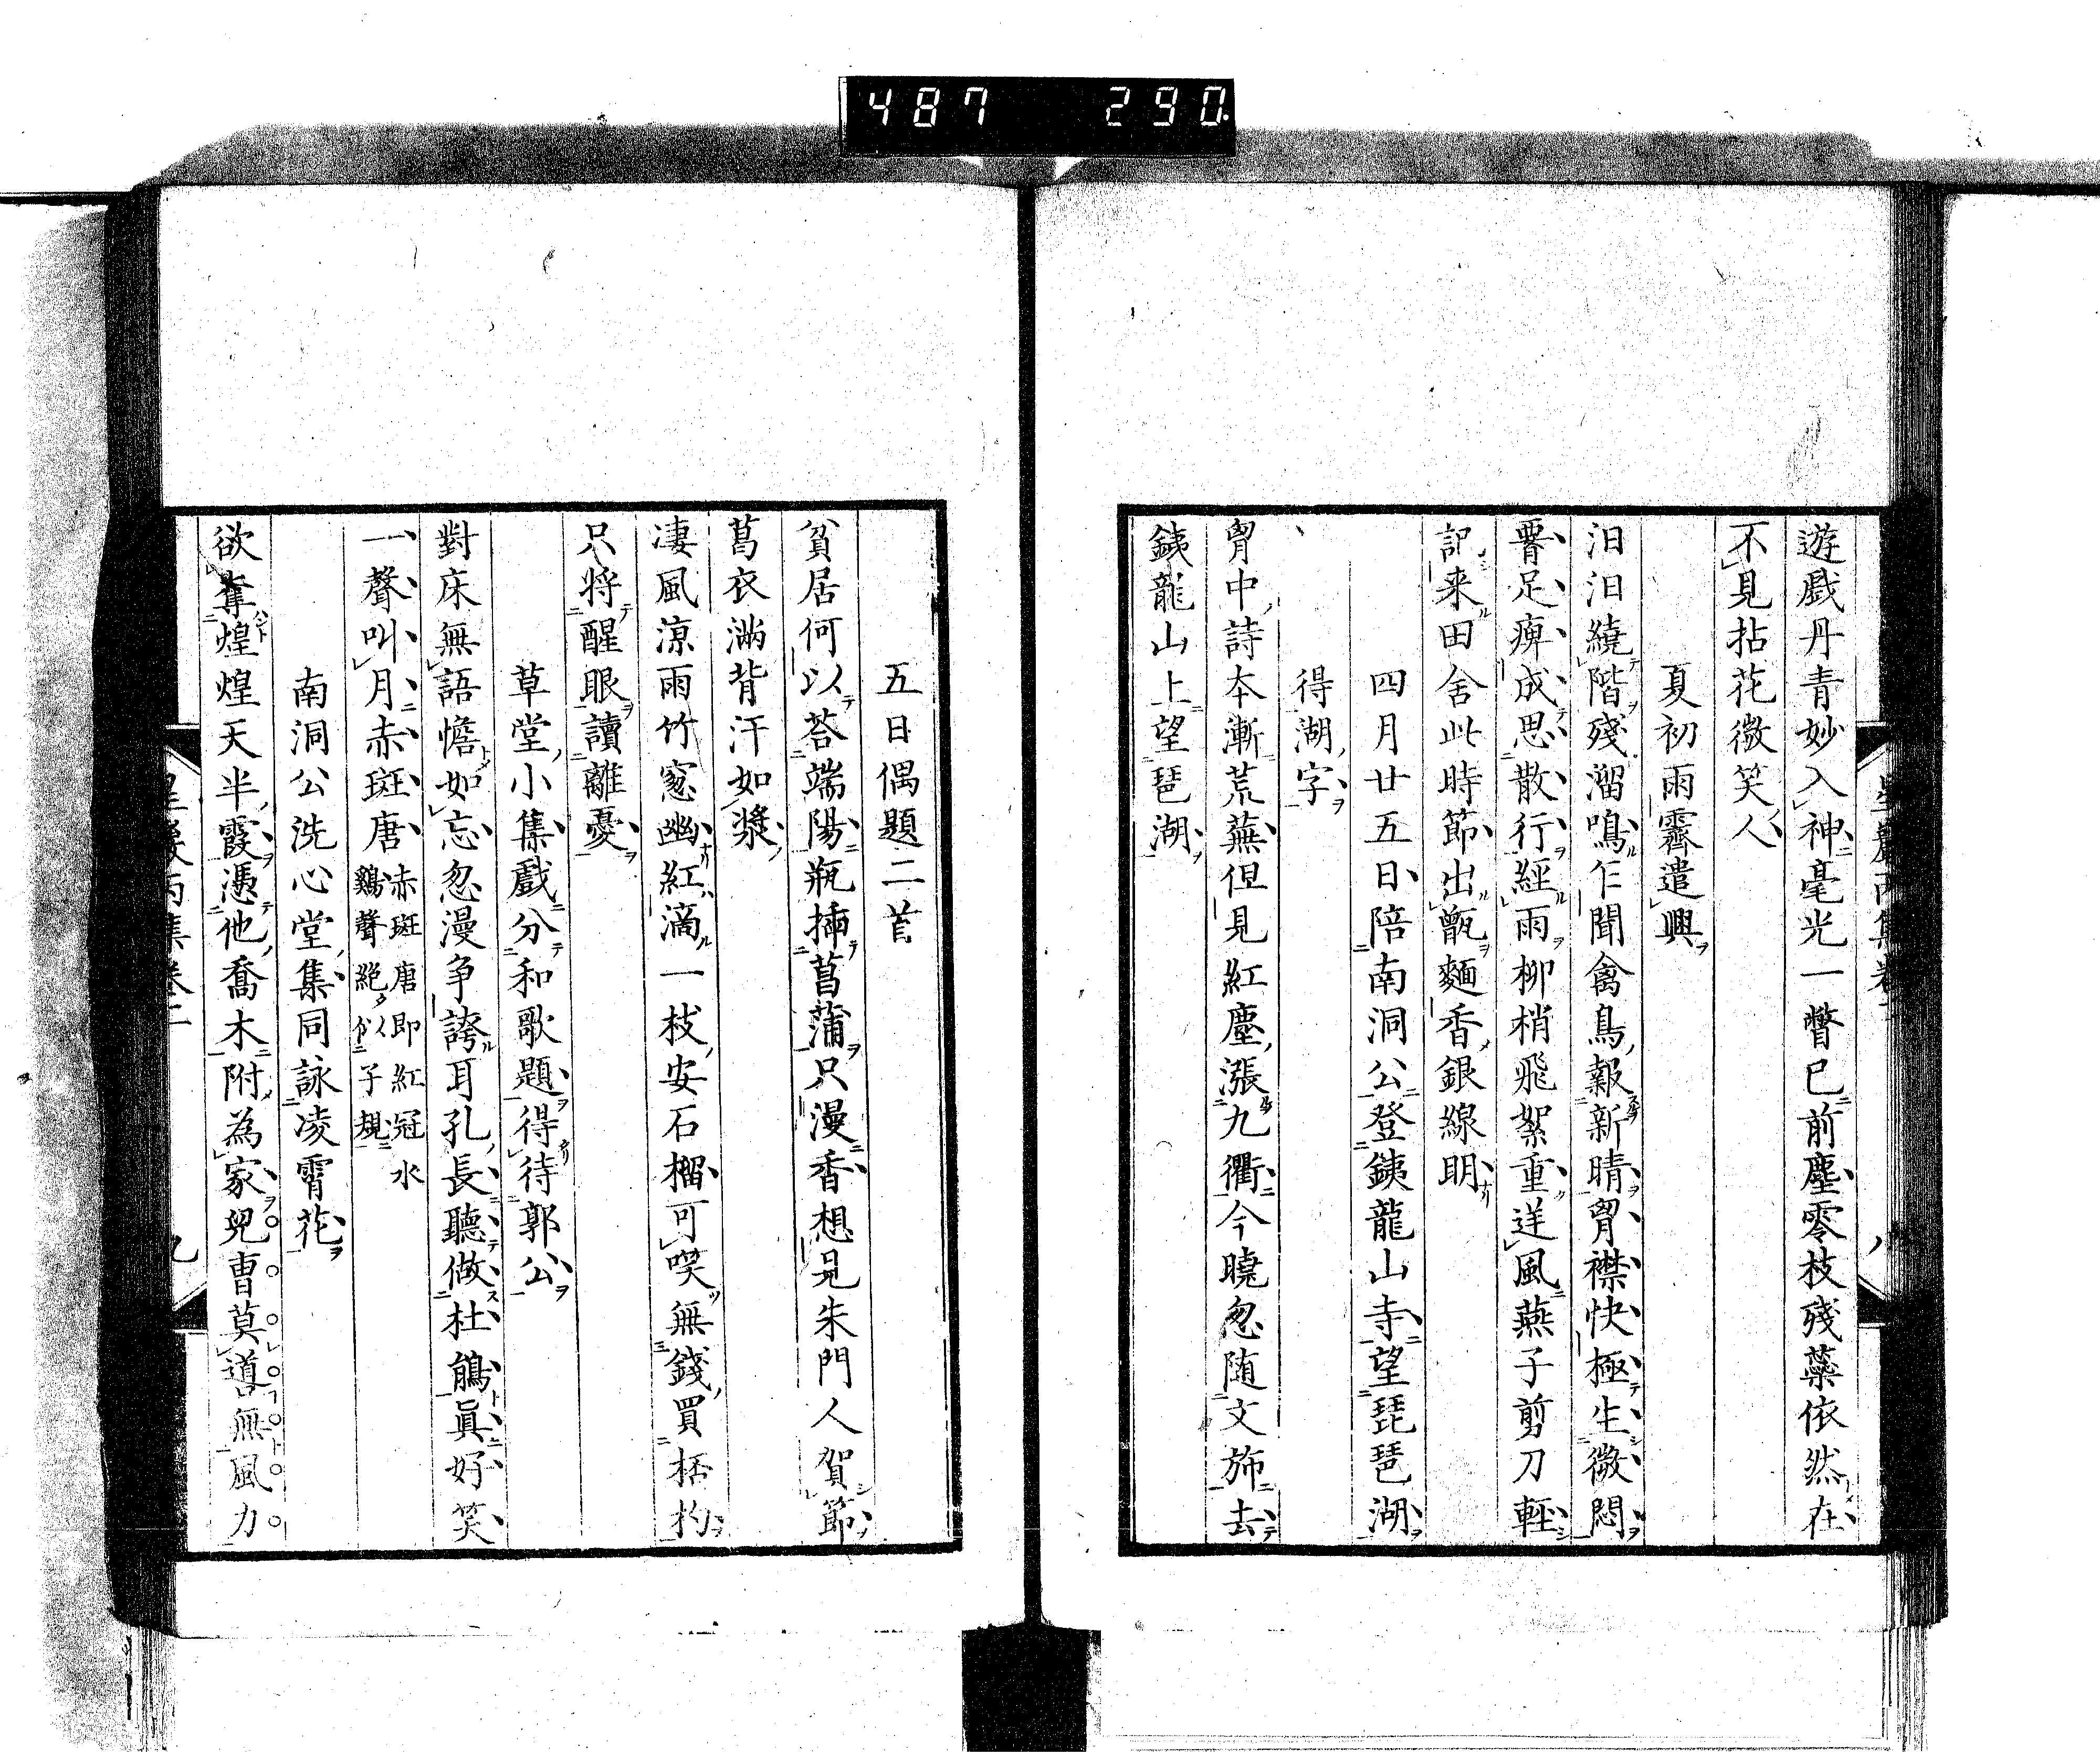 487 290
遊戲丹青妙入神毫光一瞥已前塵零枝殘藥依然在
不見拈花微笑人
夏初雨霽遣興
汩汩繞階殘溜鳴乍聞禽鳥報新晴胷襟快極生微悶
髀足痺成思散行經雨柳梢飛絮重逆風燕子剪刀輕
記来田舍此時節出甑麵香銀線明
四月廿五日陪南洞公登銕龍山寺望琵琶湖
得湖字
胷中詩本漸荒蕪但見紅塵漲九衢今曉忽随文斾去
銕龍山上望琶湖
五日偶題二首
貧居何以荅端陽瓶揷菖蒲只漫香想見朱門人賀節
葛衣滿背汗如漿
凄風涼雨竹窻幽紅滴一枝安石榴可喫無錢買桮杓
只將醒眼讀離憂
草堂小集戲分和歌題得待郭公
對床無語憺如忘忽漫争誇耳孔長聽做杜鵑眞好笑
一聲叫月赤斑唐赤斑唐即紅冠水
鷄聲絕以子規
南洞公洗心堂集同詠凌霄花
欲奪煌煌天半霞憑他喬木附為家兒曹莫道無風力
九